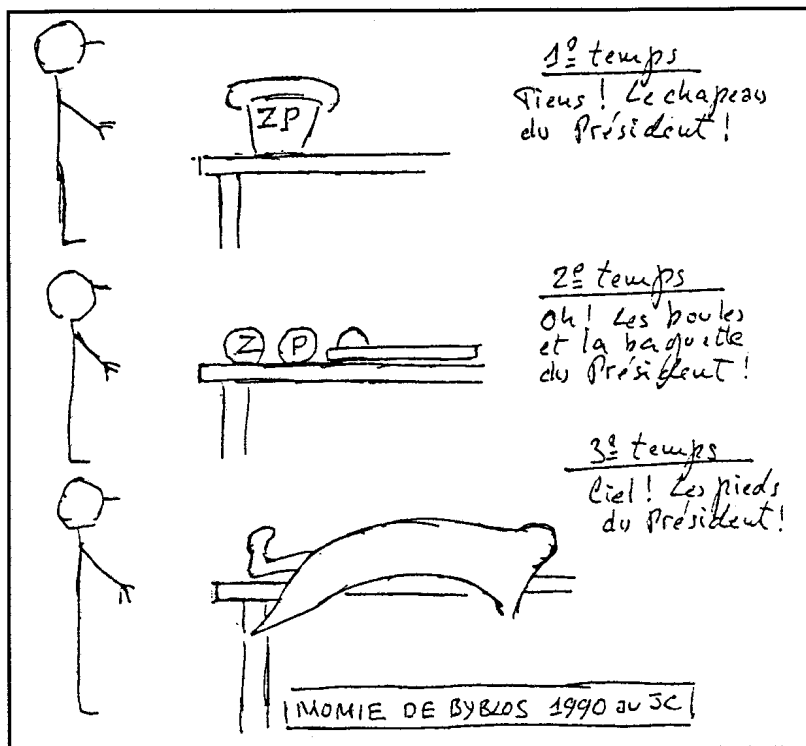 1º temps
Tiens ! Le chapeau
du Président !
ZP
2e temps
Oh ! Les boules
et la baguette
du Président !
Z P
3e temps
Ciel ! Les pieds
du Président !
MOMIE DE BYBLOS 1990 av JC